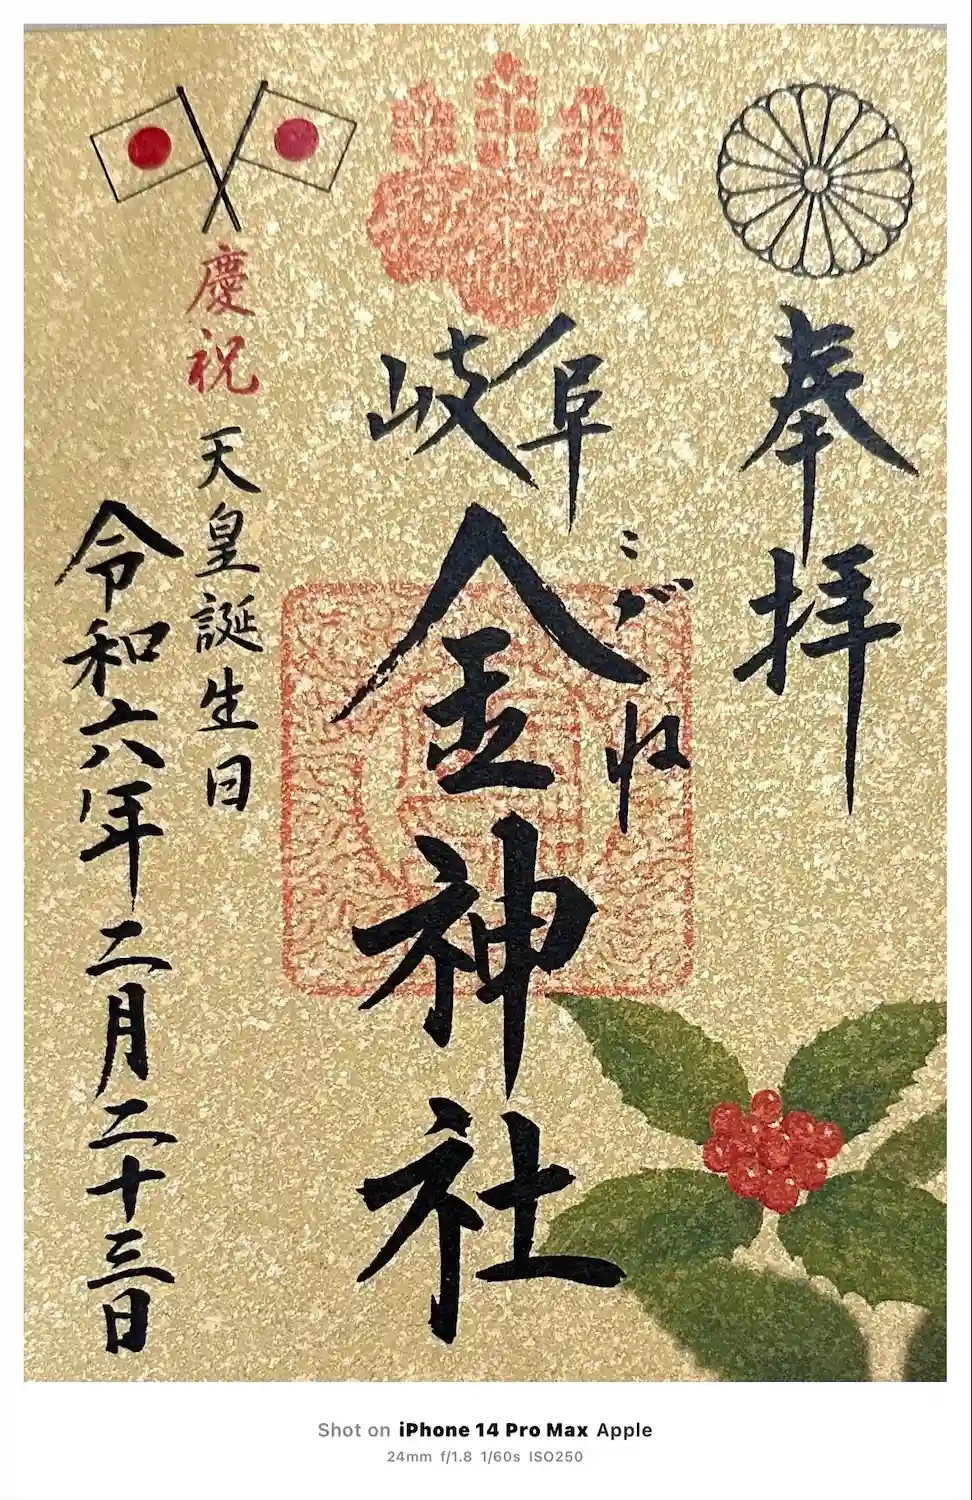 奉拝
岐阜
こがね
金神社
慶祝
天皇誕生日
令和六年二月二十三日
Shot on iPhone 14 Pro Max Apple
24mm f/1.8 1/60s ISO250